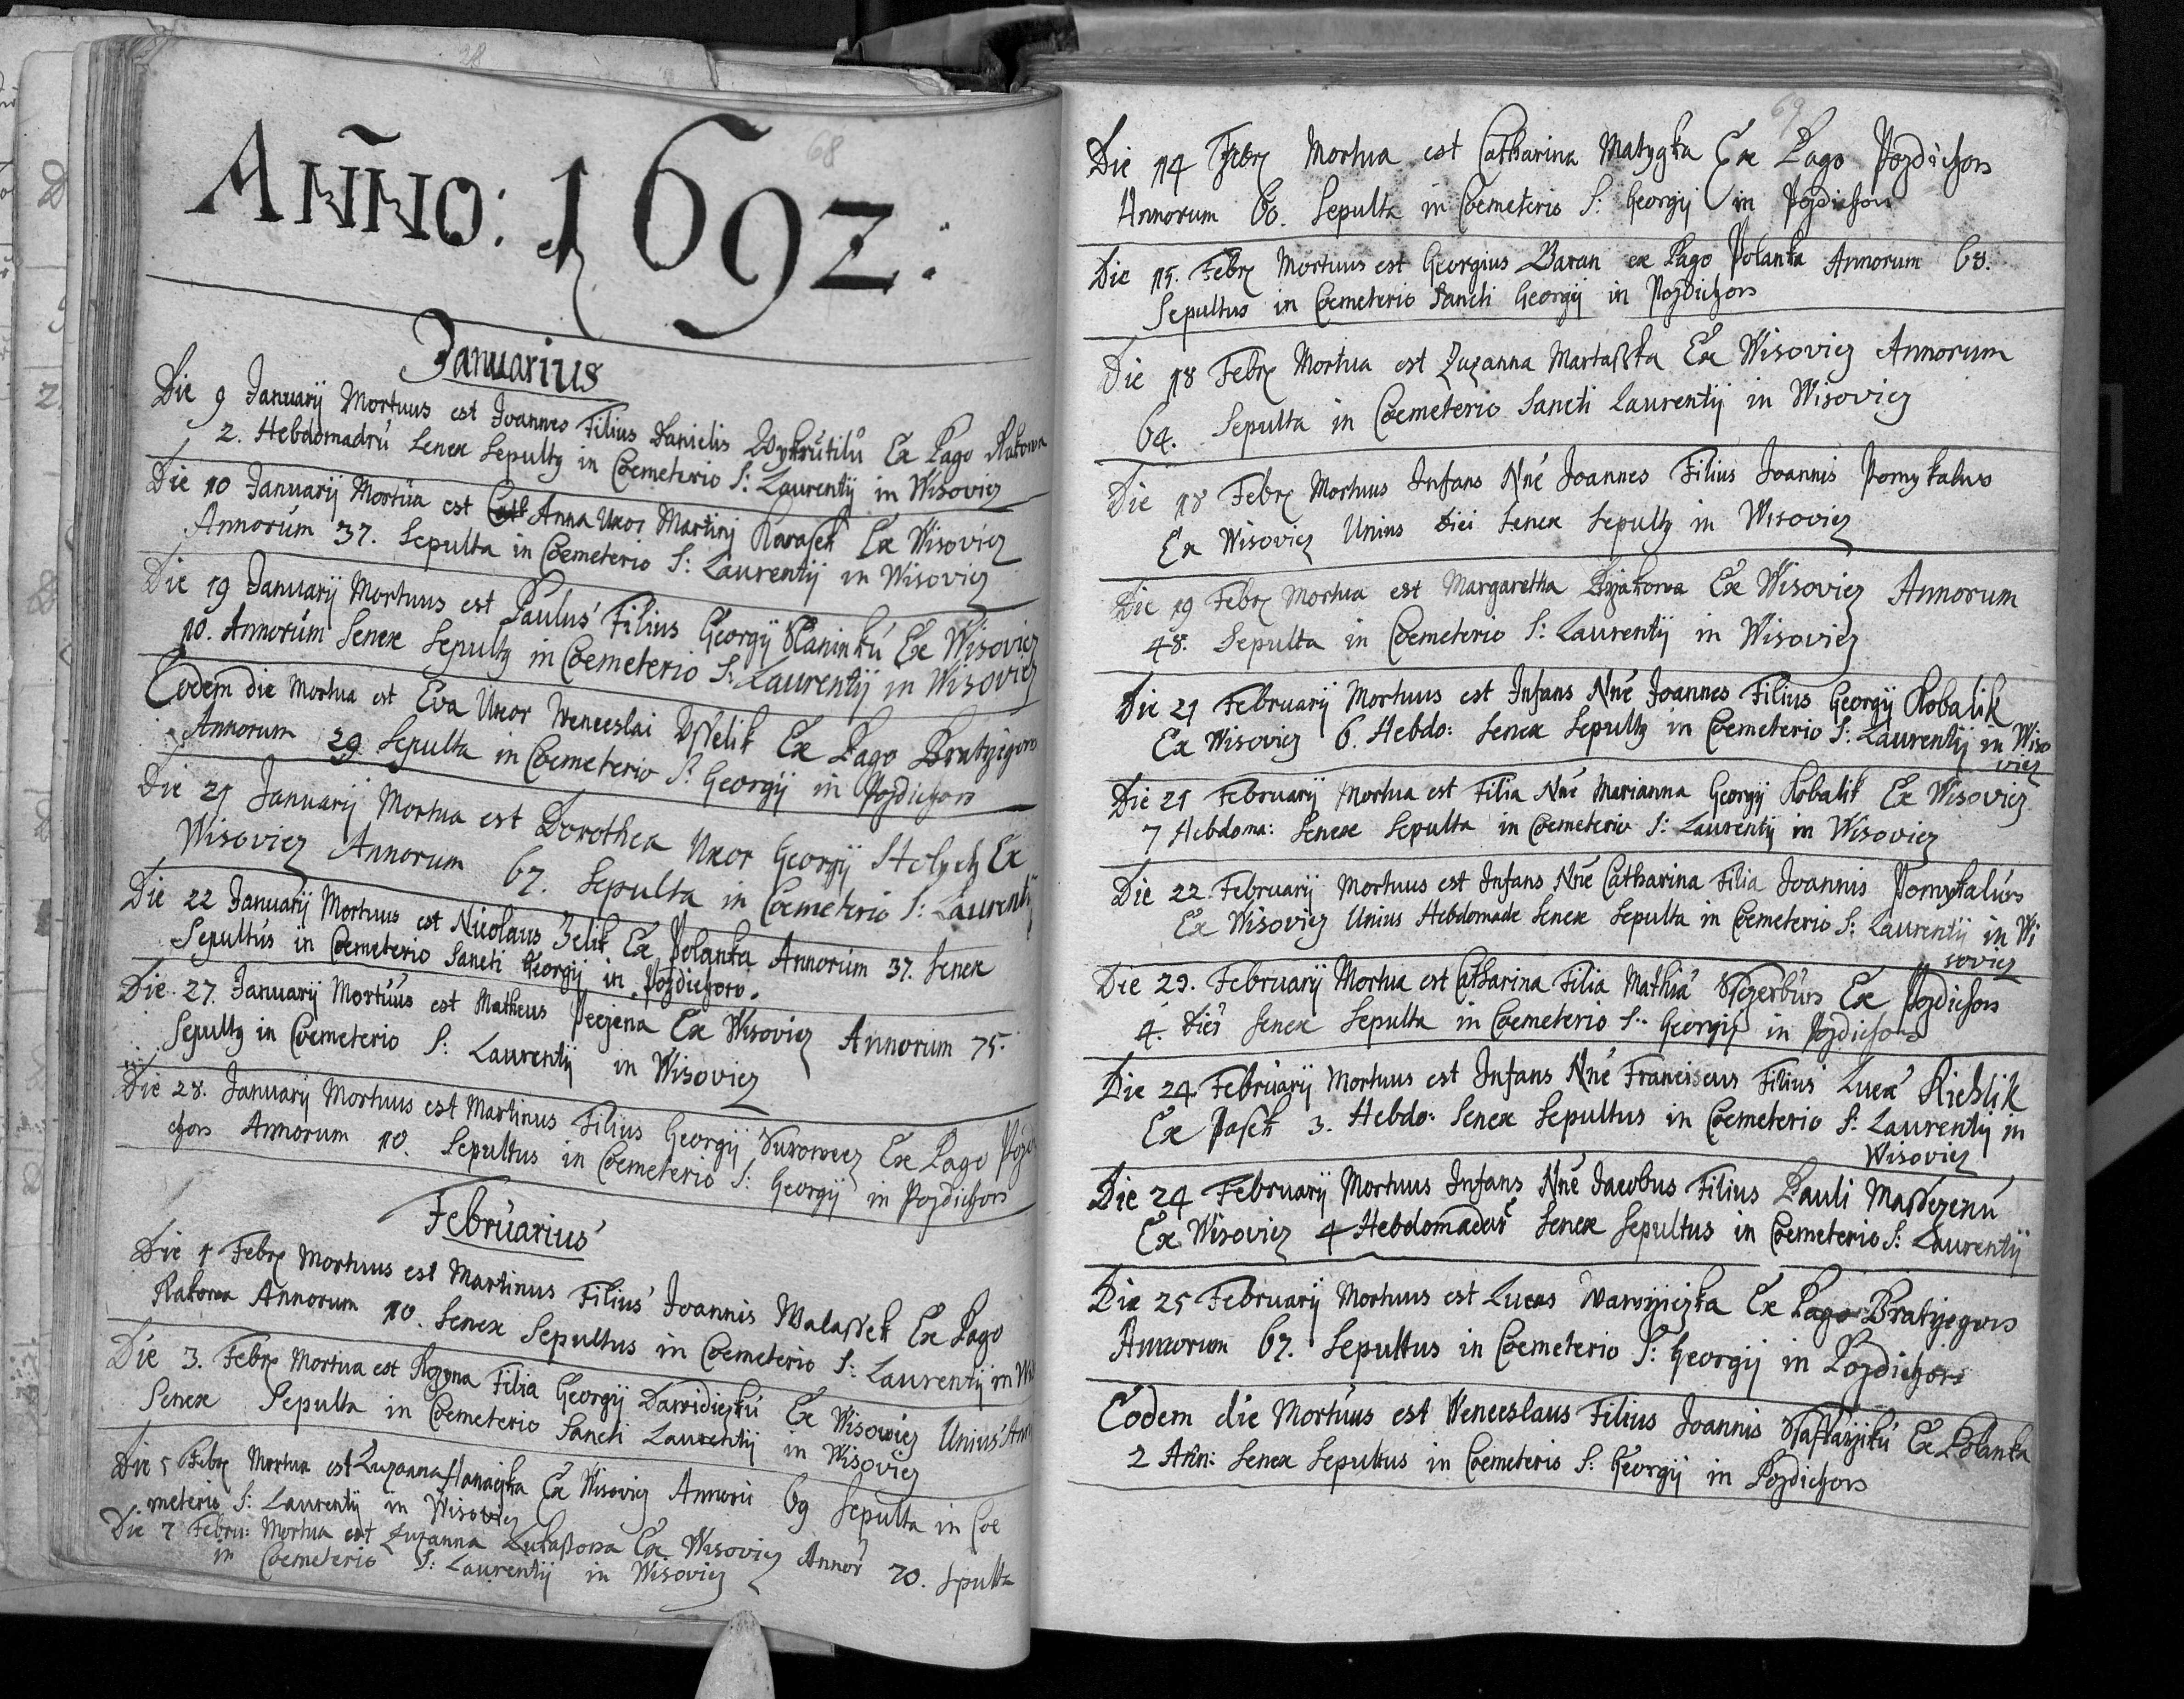 68
AÑNO: 1692:
Januarius
Die 9 Januarij Mortuus est Joannes Filius Danielis Wykrutilů Ex Pago Rakowa
2. Hebdomadrú Senex Sepultq in Coemeterio S: Laurentij in Wisoviez
Die 10 Januarij Mortúa est Anna Uxor Martinj Karasek Ex Wisoviez
Annorúm 37. Sepulta in Coemeterio S: Laurentij in Wisoviez
Die 19 Januarij Mortuus est Paulus Filius Georgij Slaninkú Ex Wisoviez
10. Annorúm Senex Sepultq in Coemeterio S: Laurentij in Wisoviez
Eodem die Mortua est Eva Uxor Wenceslai Ex Pago Bratrzegow
Annorum 29 Sepulta in Coemeterio S: Georgij in Pozdiehow
Die 21 Januarij Mortua est Dorothea Uxor Georgij Ex
Wisoviez Annorum 67. Sepulta in Coemeterio S: Laurentij
Die 22 Januarij Mortuus est Nicolaus Zelik Ex Polanka Annorúm 37. Senex
Sepultús in Coemeterio Sancti Georgij in Pozdiechow.
Die 27. Januarij Mortúús est Matheus Peczena Ex Wisoviez Annorum 75.
Sepultq in Coemeterio S: Laurentij in Wisoviez
Die 28. Januarij Mortuus est Martinus Filius Georgij Surowecz Ex Pago Pozdi
chow Annorum 10. Sepultus in Coemeterio S: Georgij in Pozdiechow
Februarius
Die 1 Febrx Mortuus est Martinus Filius Joannis Walassek Ex Pago
Rakowa Annorum 10. Senex Sepultus in Coemeterio S: Laurentij in Wis
Die 3. Febrx Mortua est Rozyna Filia Georgij Dawidiczkú Ex Wisowiez Unius Ann
Senex Sepulta in Coemeterio Sancti Laurentij in Wisoviez
Die 5 Febrx Mortua est Zuzanna Hanaczka Ex Wisoviez Annorú 69 Sepulta in Coe
meterio S: Laurentij in Wisoviez
Die 7 Febru: Mortua est Zuzanna Lukaßowa Ex Wisoviez Annor 70. Spulta
in Coemeterio S: Laurentij in Wisoviez
69
Die 14 Febrx Mortua est Catharina Matygka Ex Pago Pozdiechow
Annorum 60. Sepulta in Coemeterio S: Georgij in Pozdiechow
Die 15. Febrx Mortuus est Georgius Baran ex Pago Polanka Annorum 68.
Sepultus in Coemeterio Sancti Georgij in Pozdiechow
Die 18 Febrx Mortua est Zuzanna Martaßka Ex Wisoviez Annorum
64. Sepulta in Coemeterio Sancti Laurentij in Wisoviez
Die 18 Febrx Mortuus Infans Nné Joannes Filius Joannis Pomykalus
Ex Wisoviez Unius diei Senex Sepultq in Wisoviez
Die 19 Febrx Mortua est Margaretha Ex Wisoviez Annorum
48. Sepulta in Coemeterio S: Laurentij in Wisoviez
Die 21 Februarij Mortuus est Infans Nné Joannes Filius Georgij Kobalik
Ex Wisoviez 6. Hebdo: Senex Sepultq in Coemeterio S: Laurentij in Wiso
viez
Die 21 Februarij Mortua est Filia Nné Marianna Georgij Kobalik Ex Wisoviez
7 Hebdoma: Senex Sepulta in Coemeterio S: Laurentij in Wisoviez
Die 22 Februarij Mortuus est Infans Nné Catharina Filia Joannis Pomykalús
Ex Wisoviez Unius Hebdomade Senex Sepulta in Coemeterio S: Laurentij in Wi
soviez
Die 23. Februarij Mortua est Catharina Filia Mathiá Ex Pozdiechow
4. dies Senex Sepulta in Coemeterio S: Georgij in Pozdiechow
Die 24 Februarij Mortuus est Infans Nné Franciscus Filius Lucá Riehlik
Ex Pasek 3. Hebdo: Senex Sepultus in Coemeterio S: Laurentij in
Wisoviez
Die 24 Februarij Mortuus Infans Nné Jacobus Filius Pauli Massezenú
Ex Wisoviez 4 Hebdomadar Senex Sepultus in Coemeterio S: Laurentij
Die 25 Februarij Mortuus est Lucas Wawrzieczka Ex Pago Bratrzegow
Annorum 67. Sepultus in Coemeterio S: Georgij in Pozdiechow
Eodem die Mortúus est Wenceslaus Filius Joannis Ex Polanka
2 Ann: Senex Sepultus in Coemeterio S: Georgij in Pozdiechow